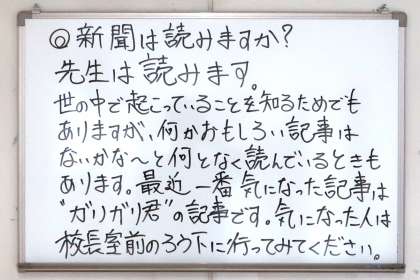 ◎新聞は読みますか?
先生は読みます。
世の中で起こっていることを知るためでも
ありますが、何かおもしろい記事は
ないかな〜と何となく読んでいるときも
あります。最近一番気になった記事は
"ガリガリ君"の記事です。気になった人は
校長室前のろう下に行ってみてください。